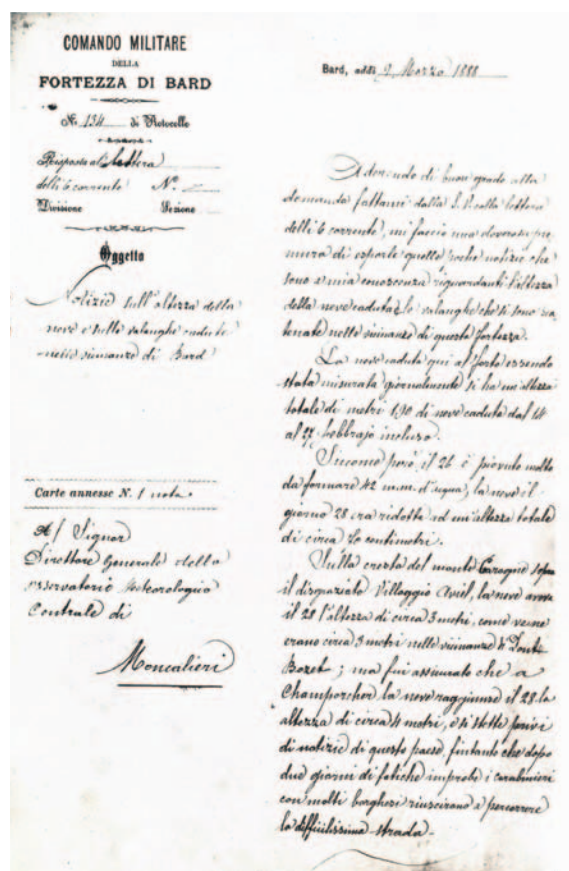 COMANDO MILITARE
DELLA
FORTEZZA DI BARD
N. 134 di Protocollo
Risposta alla lettera
delli 6 corrente N.
Divisione Sezione
Oggetto
Notizie sull'altezza della
neve e sulle valanghe cadute
nelle vicinanze di Bard
Carte annesse N. 1 nota
Al Signor
Direttore Generale della
osservatorio Meteorologico
Centrale di
Moncalieri
Bard, addì 9 Marzo 1888
Aderendo di buon grado alla
domanda fattami dalla S. V. colla lettera
delli 6 corrente, mi faccio una doverosa pre
mura di esporle quelle poche notizie che
sono a mia conoscenza riguardanti l'altezza
della neve caduta e le valanghe che si sono sca
tenate nelle vicinanze di questa fortezza.
La neve caduta qui al forte essendo
stata misurata giornalmente si ha un'altezza
totale di metri 1,90 di neve caduta dal 14
al 27 febbrajo incluso.
Siccome però il 26 è piovuto molto
da formare 42 m.m. d'acqua, la neve il
giorno 28 era ridotta ad un'altezza totale
di circa centimetri.
Sulla cresta del monte sopra
il disgraziato Villaggio Aviel, la neve aveva
il 28 l'altezza di circa 3 metri, come ve ne
erano circa 3 metri nelle vicinanze di Pont
Bozet; ma fui assicurato che a
Champorcher la neve raggiunse il 28 la
altezza di circa 4 metri, e si stette privi
di notizie di questo paese, fintanto che dopo
due giorni di fatiche improbe i carabinieri
con molti borghesi riuscirono a percorrere
la difficilissima strada.